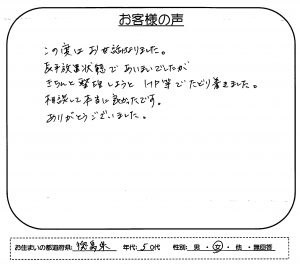 お客様の声
この度はお世話なりました。
長年放置状態であいまいでしたが
きちんと整理しようとHP等でたどり着きました。
相談して本当に良かったです。
ありがとうございました。
お住まいの都道府県: 徳島県 年代: 50代 性別: 男・女・他・無回答